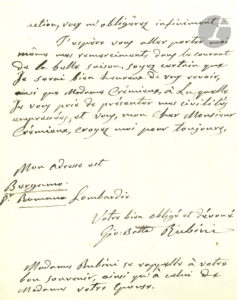 action, vous m'obligerez infiniment.
J'espère vous aller porter moi
même mes remerciments, dans le courant
de la belle saison, soyez certain que
Je serai bien heureux de vous revoir,
ainsi que Madame Crémieux, à La quelle
Je vous prie de présenter mes civilités
empressées, et vous, mon cher Monsieur
Crémieux, croyez moi pour toujours,
Mon adresse est
Bergamo
pr. Romano Lombardie
Votre bien obligé et dévoué
Gio: Batta Rubini
Madame Rubini se rappelle à votre
bon souvenir, ainsi qu'à celui de
Madame votre Epouse.